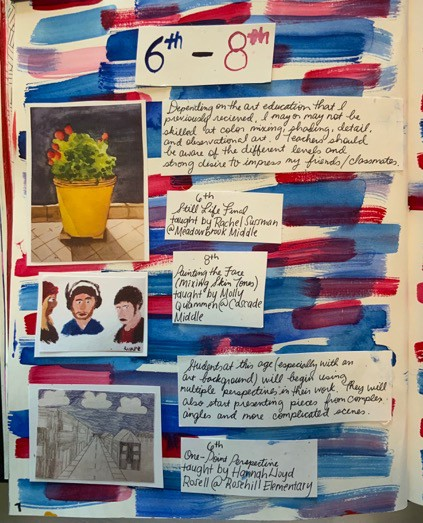 6th - 8th
Depending on the art education that I
previously recieved, I may or may not be
skilled at color mixing, shading, detail,
and observational art. Teachers should
be aware of the different levels and
strong desire to impress my friends/classmates.
6th
Still Life Final
taught by Rachel Sussman
@Meadowbrook Middle
8th
Painting the Face
(Mixing Skin Tones)
taught by Molly
@ Cascade
Middle
Students at this age (especially with an
art background) will begin using
multiple perspectives in their work. They will
also start presenting pieces from complex
angles and more complicated scenes.
6th
One-Point Perspective
taught by Hannah Lloyd
Rosell @ Rosehill Elementary